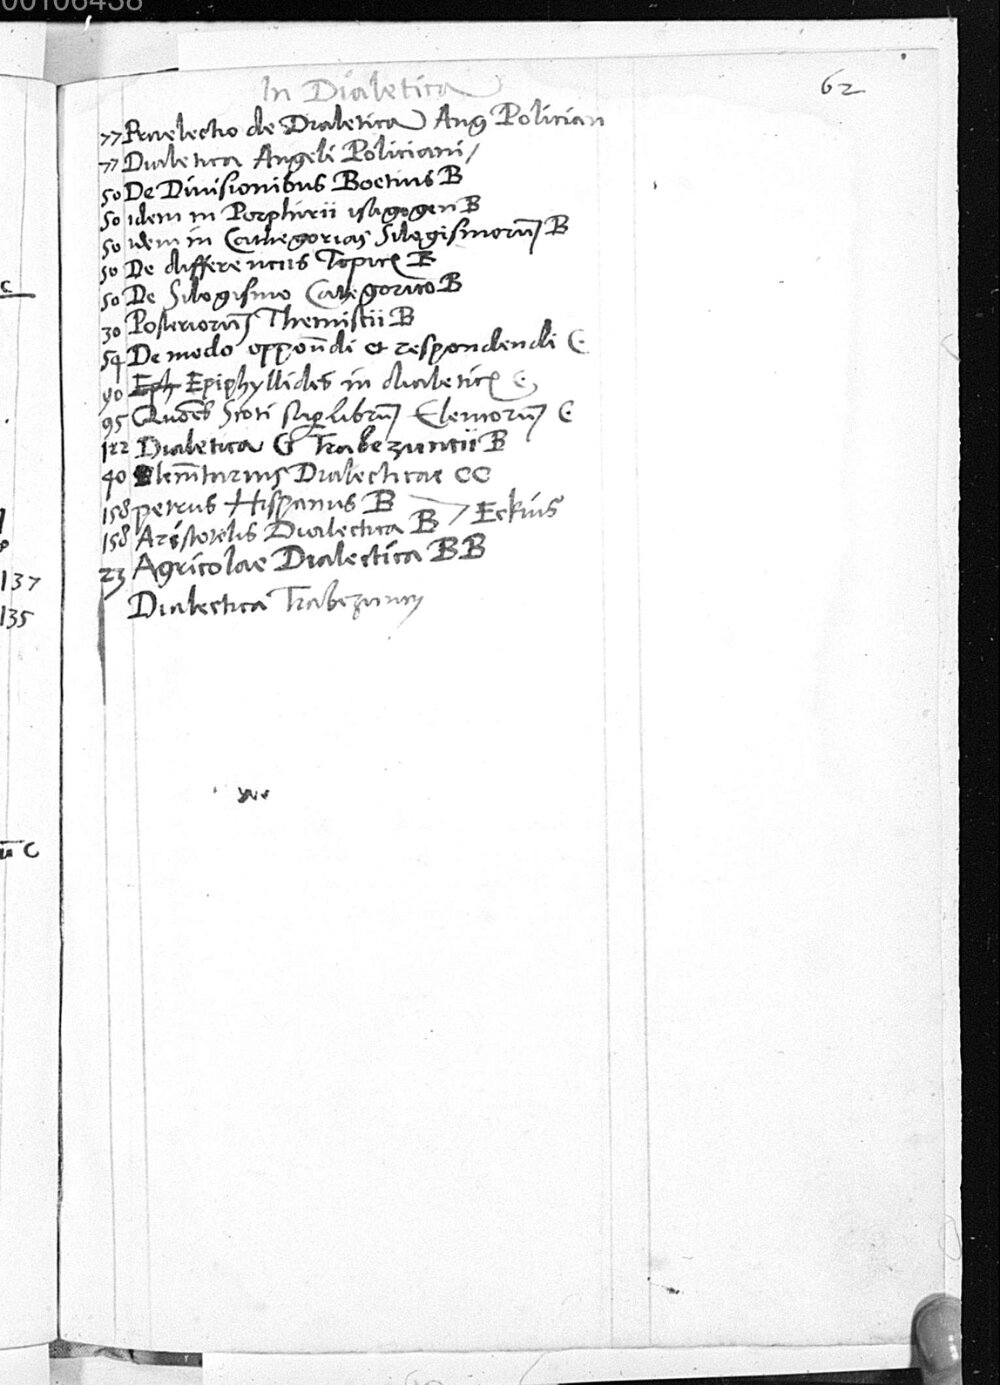 00106438
62
In Dialetica
77 Praelectio de Dialetica Ang Polician
77 Dialetica Angeli Policiani/
50 De Diuisionibus Boetius B
50 idem in Porphirii isagogen B
50 idem in Cathegorias Silogismorum B
50 De differentiis Topicis B
50 De Silogismo Categorico B
30 Posteriorum Themistii B
54 De modo oppondi et respondendi C
90 Eph Epiphyllides in dialeticis C
95 Scoti librum Elencorum C
122 Dialetica G Trabezuntii B
40 Dialecticae CC
158 petrus Hispanus B
158 Aristotelis Dialectica B > Eckius
23 Agricolae Dialectica BB
Dialectica
C
137
135
C